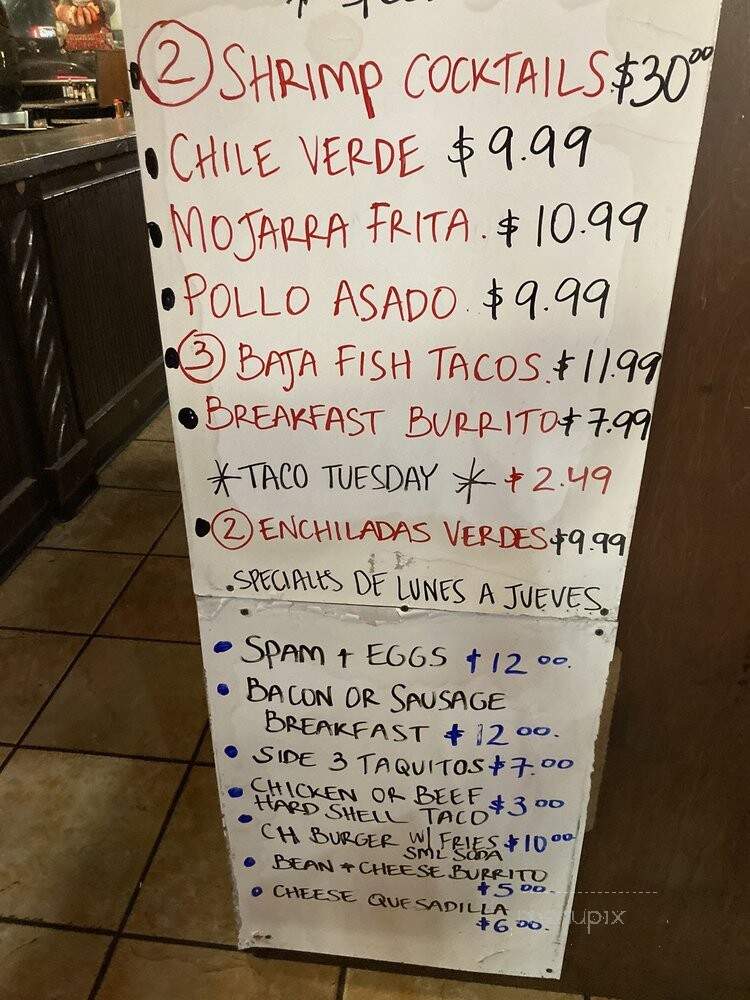 2 SHRIMP COCKTAILS $30⁰⁰
CHILE VERDE $9.99
MOJARRA FRITA. $10.99
POLLO ASADO. $9.99
3 BAJA FISH TACOS. $11.99
BREAKFAST BURRITO $7.99
*TACO TUESDAY * $2.49
2 ENCHILADAS VERDES $9.99
.SPECIALES DE LUNES A JUEVES.
SPAM + EGGS $12⁰⁰.
BACON OR SAUSAGE
BREAKFAST $12⁰⁰.
SIDE 3 TAQUITOS $7.⁰⁰
CHICKEN OR BEEF
HARD SHELL TACO $3⁰⁰
CH BURGER W/ FRIES $10⁰⁰
SML SODA
BEAN + CHEESE BURRITO
$5⁰⁰.
CHEESE QUESADILLA
$6⁰⁰.